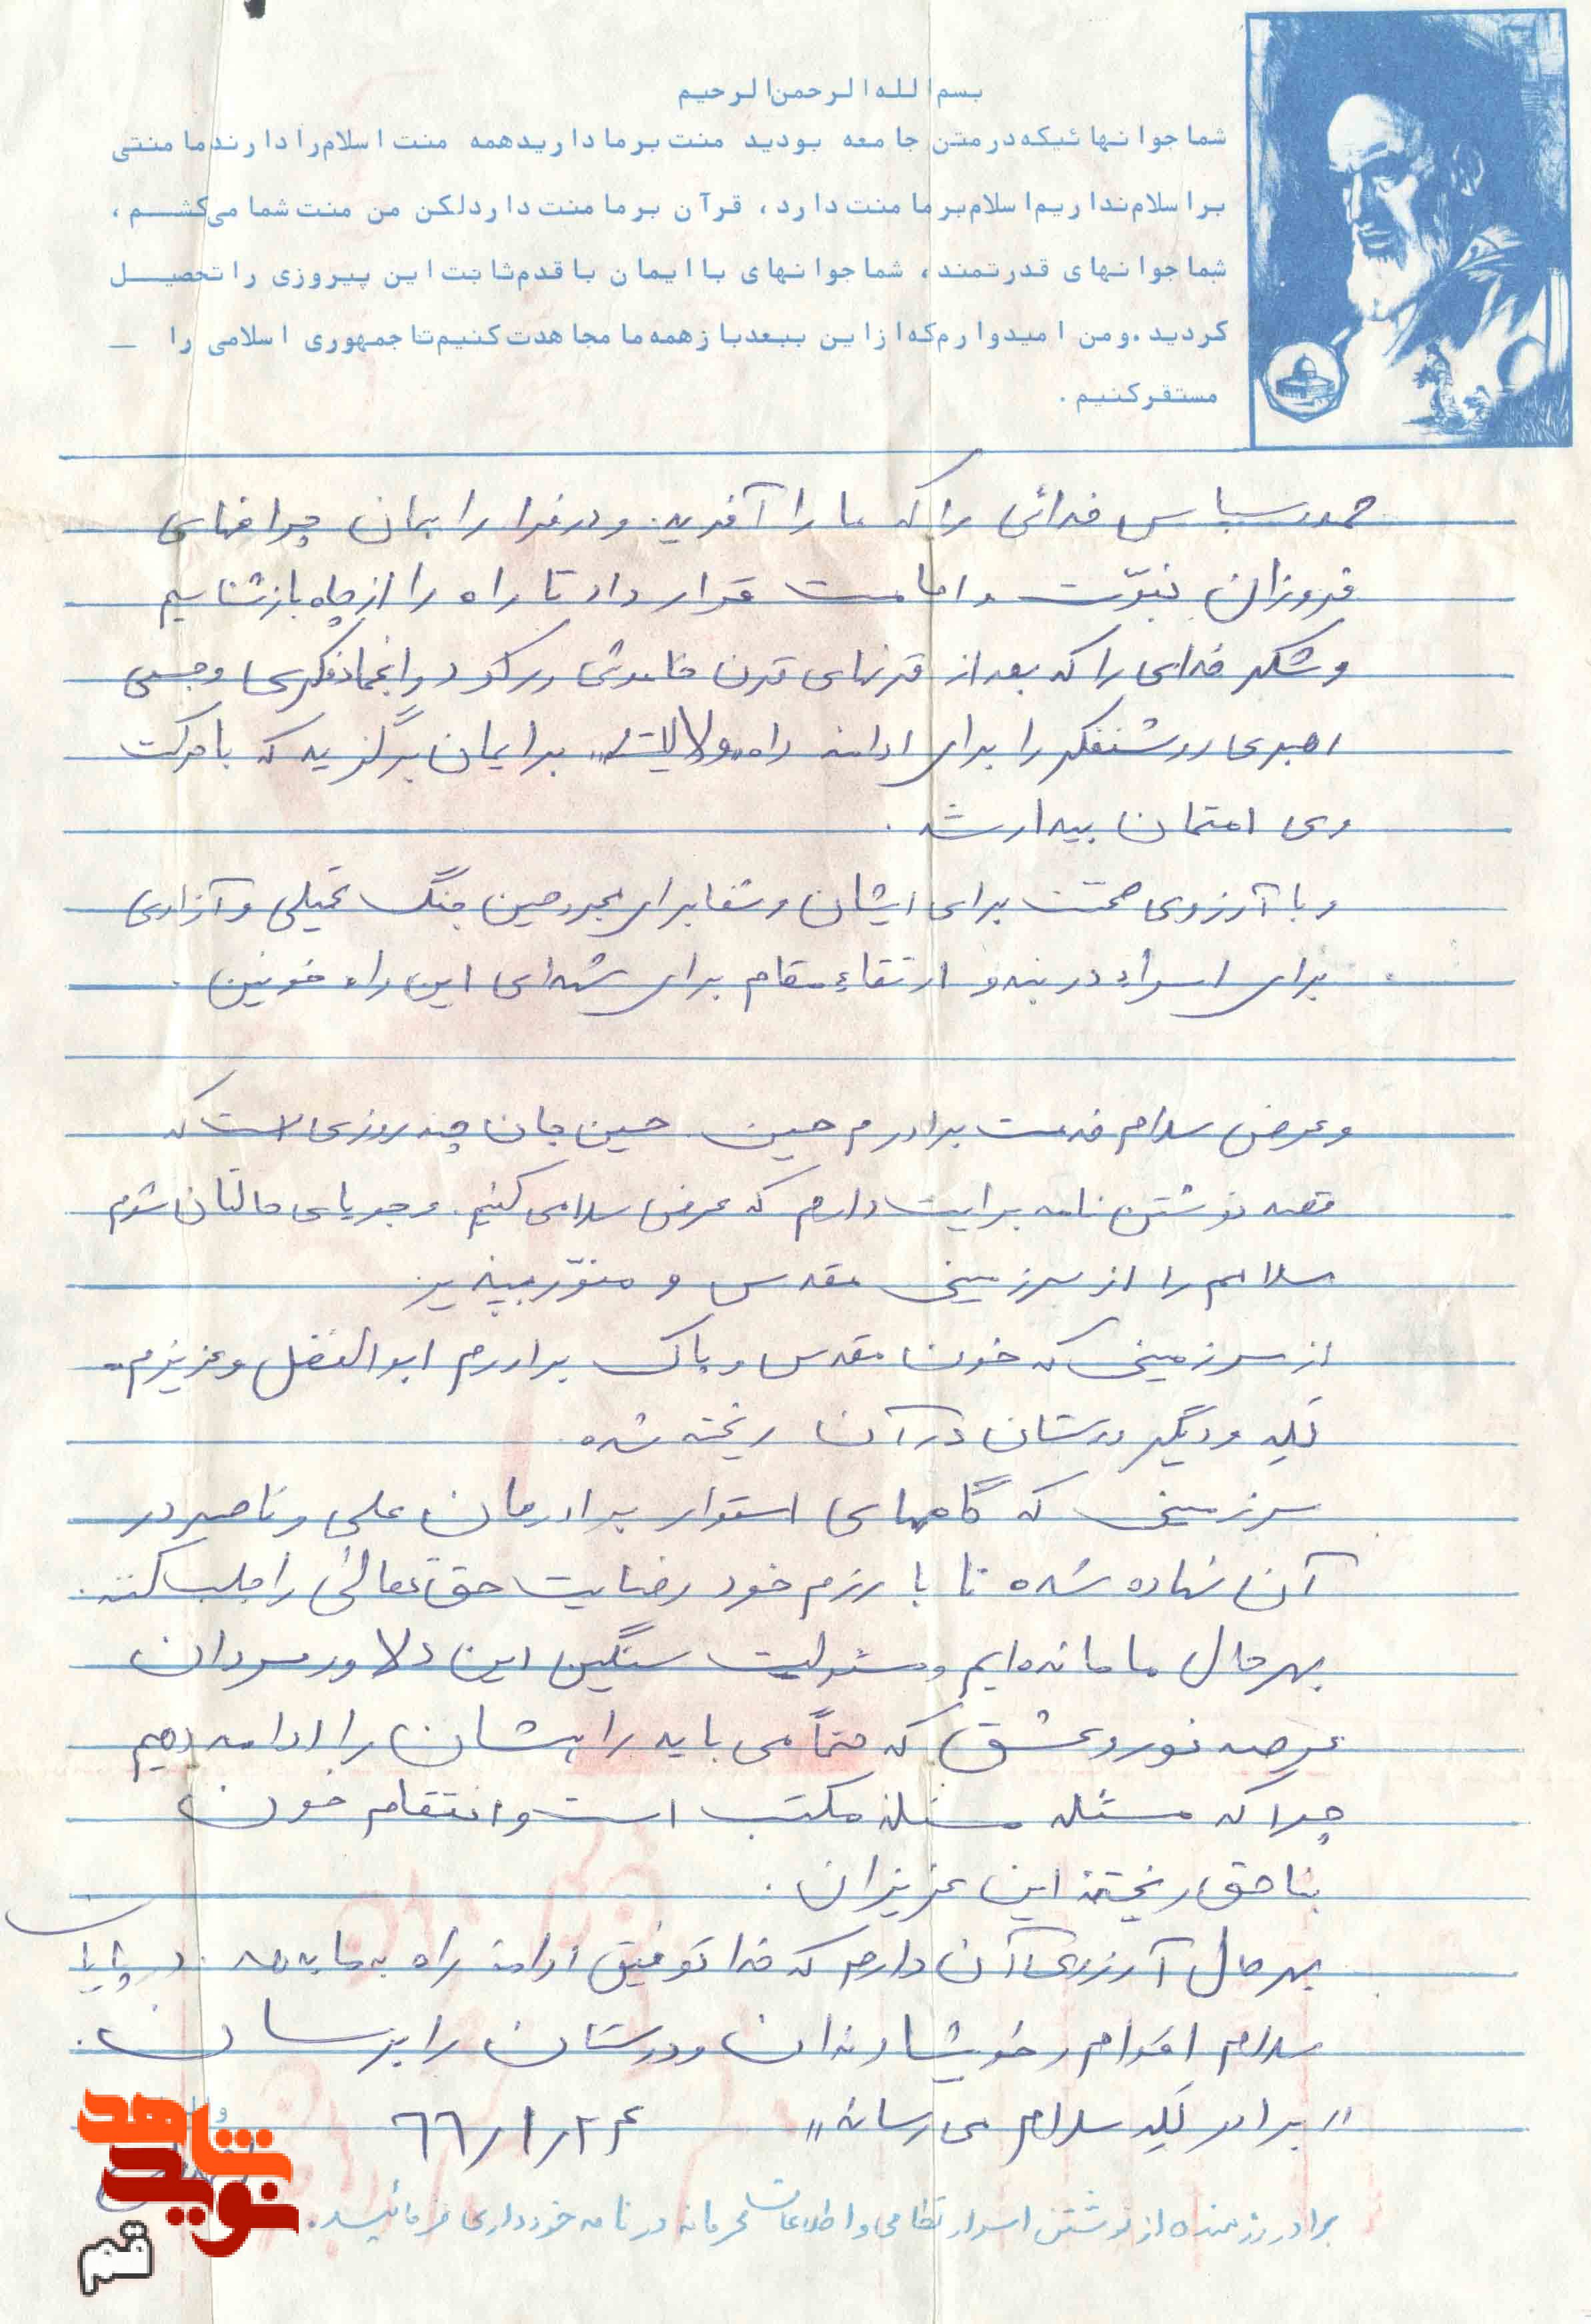 بسم الله الرحمن الرحیم
شما جوانهائیکه در متن جامعه بودید منت بر ما دارید همه منت اسلام را دارند ما منتی
بر اسلام نداریم اسلام بر ما منت دارد، قرآن بر ما منت دارد لکن من منت شما می‌کشم،
شما جوانهای قدرتمند، شما جوانهای با ایمان با قدم ثابت این پیروزی را تحصیل
کردید. و من امیدوارم که از این ببعد باز همه ما مجاهدت کنیم تا جمهوری اسلامی را
مستقر کنیم.
حمد و سپاس خدائی را که ما را آفرید. و در فرا راهمان چراغهای
فروزان نبوّت و امامت قرار داد تا راه را از چاه باز شناسیم
و شکر خدای را که بعد از قرنهای قرن خاموشی و رکود و انجماد فکری و جسمی
رهبری روشنفکر را برای ادامه راه "ولایت" برایمان برگزید که با حرکت
وی امتمان بیدار شد.
و با آرزوی صحّت برای ایشان و شفا برای مجروحین جنگ تحمیلی و آزادی
برای اسراء در بند و ارتقاء مقام برای شهدای این راه خونین.
و عرض سلام خدمت برادرم حسین. حسین جان چند روزی است که
قصد نوشتن نامه برایت دارم که عرض سلامی کنیم. و جویای حالتان شوم
سلامم را از سرزمینی مقدس و منوّر بپذیر
از سرزمینی که خون مقدس و پاک برادرم ابوالفضل و عزیزم
و دیگر دوستان در آن ریخته شده.
سرزمینی که گامهای استوار برادرمان علی و ناصر در
آن نهاده شده تا با رزم خود رضایت حق تعالی را جلب کنند.
بهر حال ما مانده‌ایم و مسئولیت سنگین این دلاور مردان
عرصه نور و عشق که حتماً می باید راهشان را ادامه دهیم
چرا که مسئله مسئله مکتب است و انتقام خون
بناحق ریخته این عزیزان.
بهر حال آرزوی آن دارم که خدا توفیق ادامه راه به ما بدهد. در پایان
سلام اقوام و خویشاوندان و دوستان را برسان.
"برادر سلام می رساند" ۶۶/۱/۲۴
برادر رزمنده از نوشتن اسرار نظامی و اطلاعات محرمانه در نامه خودداری فرمائید.
نوید شاهد
قم